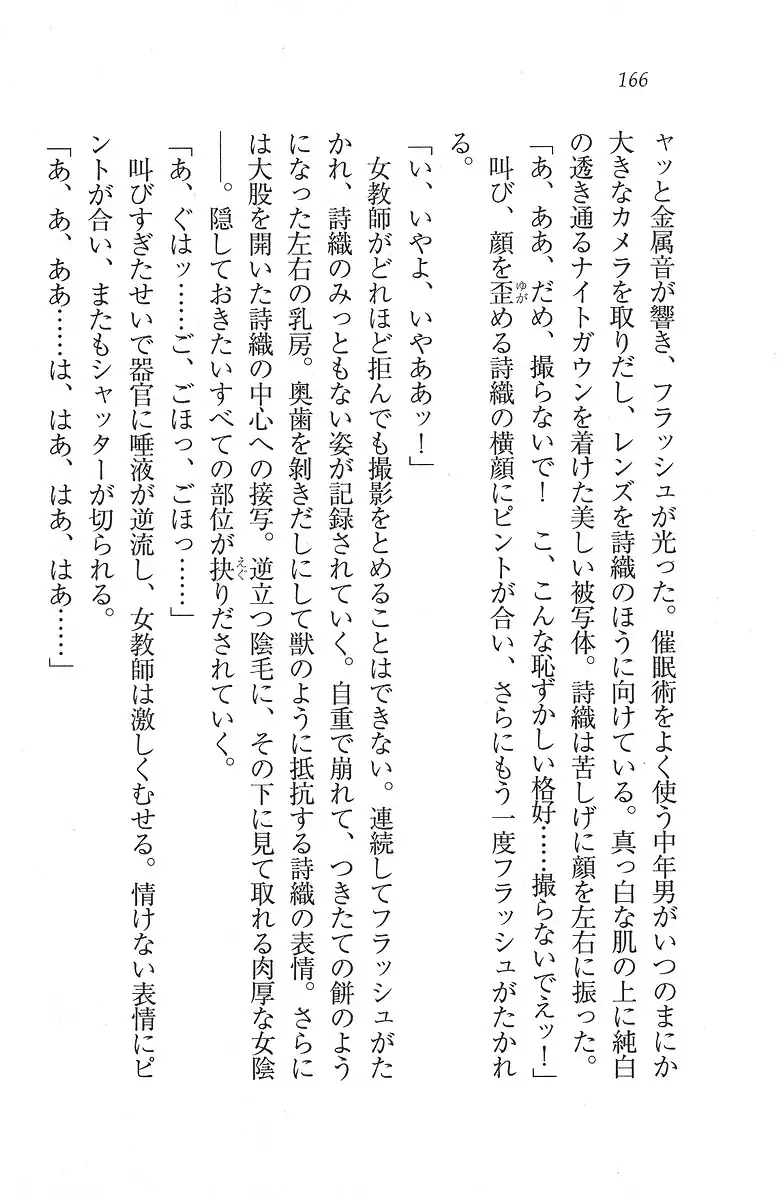 166
ャッと金属音が響き、フラッシュが光った。催眠術をよく使う中年男がいつのまにか
大きなカメラを取りだし、レンズを詩織のほうに向けている。真っ白な肌の上に純白
の透き通るナイトガウンを着けた美しい被写体。詩織は苦しげに顔を左右に振った。
「あ、ああ、だめ、撮らないで！　こ、こんな恥ずかしい格好……撮らないでえッ！」
叫び、顔を歪める詩織の横顔にピントが合い、さらにもう一度フラッシュがたかれ
ゆが
る。
「い、いやよ、いやああッ！」
女教師がどれほど拒んでも撮影をとめることはできない。連続してフラッシュがた
かれ、詩織のみっともない姿が記録されていく。自重で崩れて、つきたての餅のよう
になった左右の乳房。奥歯を剝きだしにして獣のように抵抗する詩織の表情。さらに
は大股を開いた詩織の中心への接写。逆立つ陰毛に、その下に見て取れる肉厚な女陰
——。隠しておきたいすべての部位が抉りだされていく。
えぐ
「あ、ぐはッ……ご、ごほっ、ごほっ……」
叫びすぎたせいで器官に唾液が逆流し、女教師は激しくむせる。情けない表情にピ
ントが合い、またもシャッターが切られる。
「あ、あ、ああ……は、はあ、はあ、はあ……」